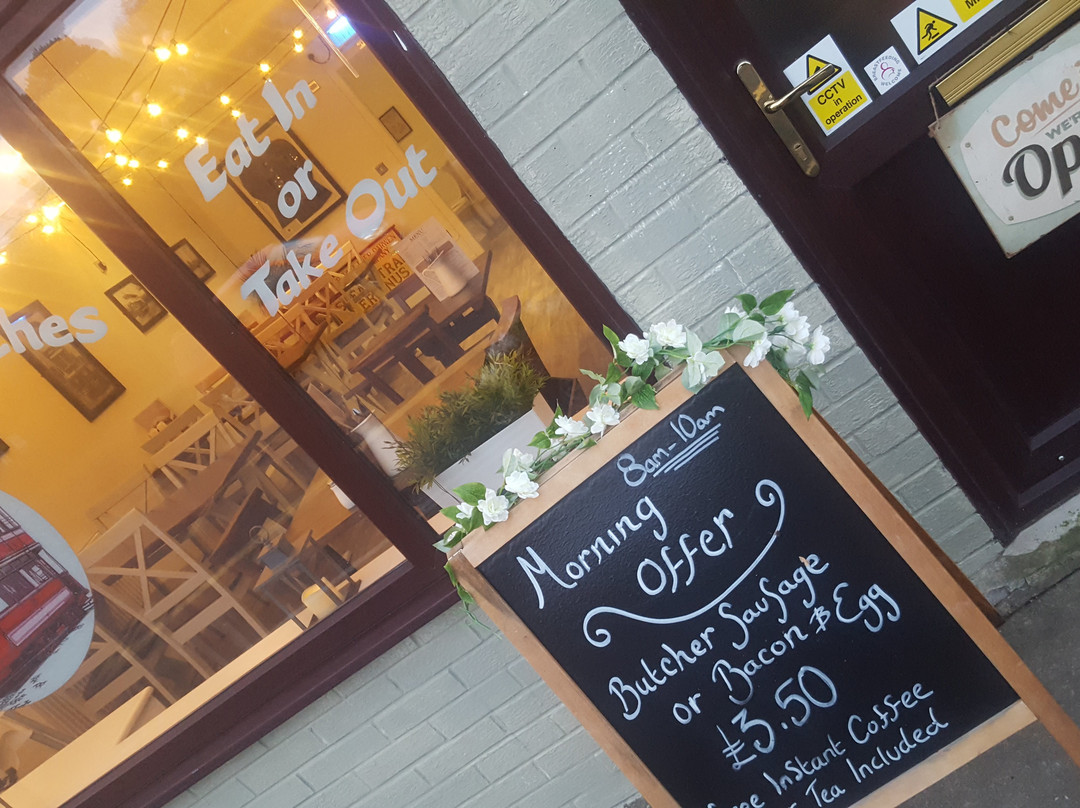 Eat In
or
Take Out
ches
CCTV
in
operation
BREASTFEEDING
WELCOME
Come
WE'RE
Op
8am-10am
Morning
Offer
Butcher Sausage
or Bacon & Egg
£3.50
Instant Coffee
Tea Included